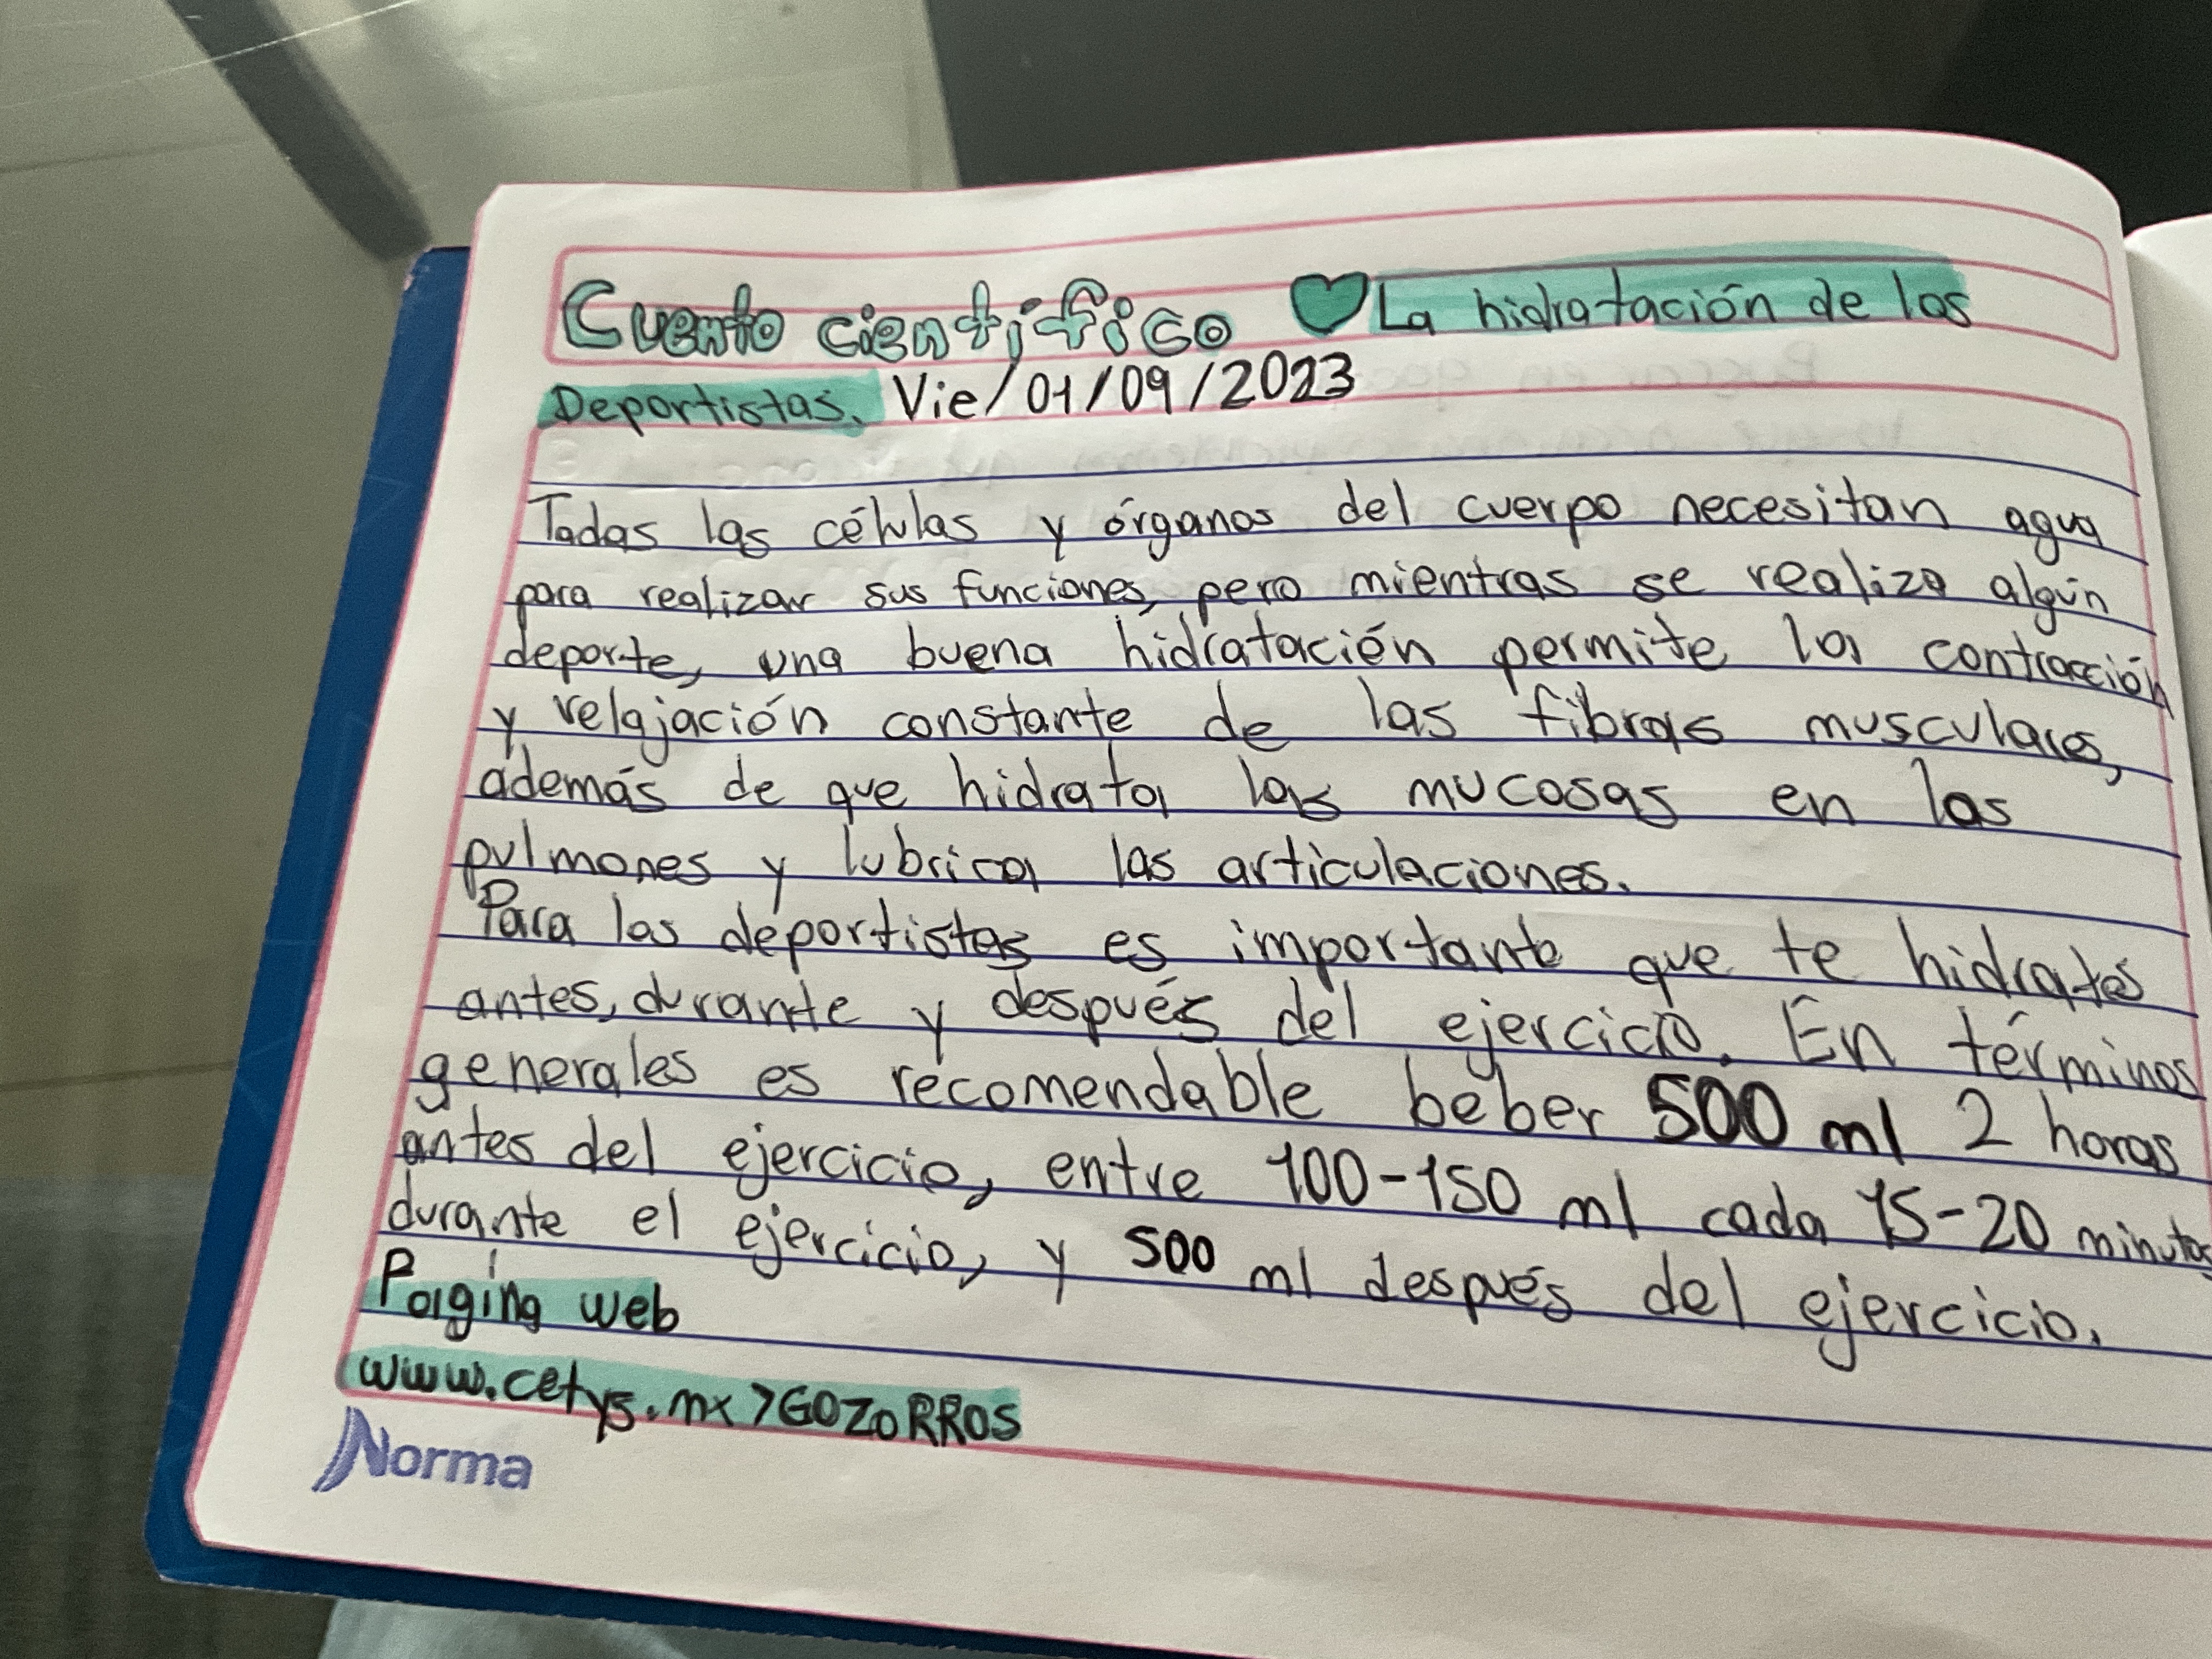 Cuento científico La hidratación de los
Deportistas. Vie/01/09/2023
Todas las células y órganos del cuerpo necesitan agua
para realizar sus funciones, pero mientras se realiza algún
deporte, una buena hidratación permite la contracción
y relajación constante de las fibras musculares,
además de que hidrata las mucosas en los
pulmones y lubrica las articulaciones.
Para los deportistas es importante que te hidrates
antes, durante y después del ejercicio. En términos
generales es recomendable beber 500 ml 2 horas
antes del ejercicio, entre 100-150 ml cada 15-20 minutos
durante el ejercicio, y 500 ml después del ejercicio.
Página web
www.cetys.mx>GOZORROS
Norma